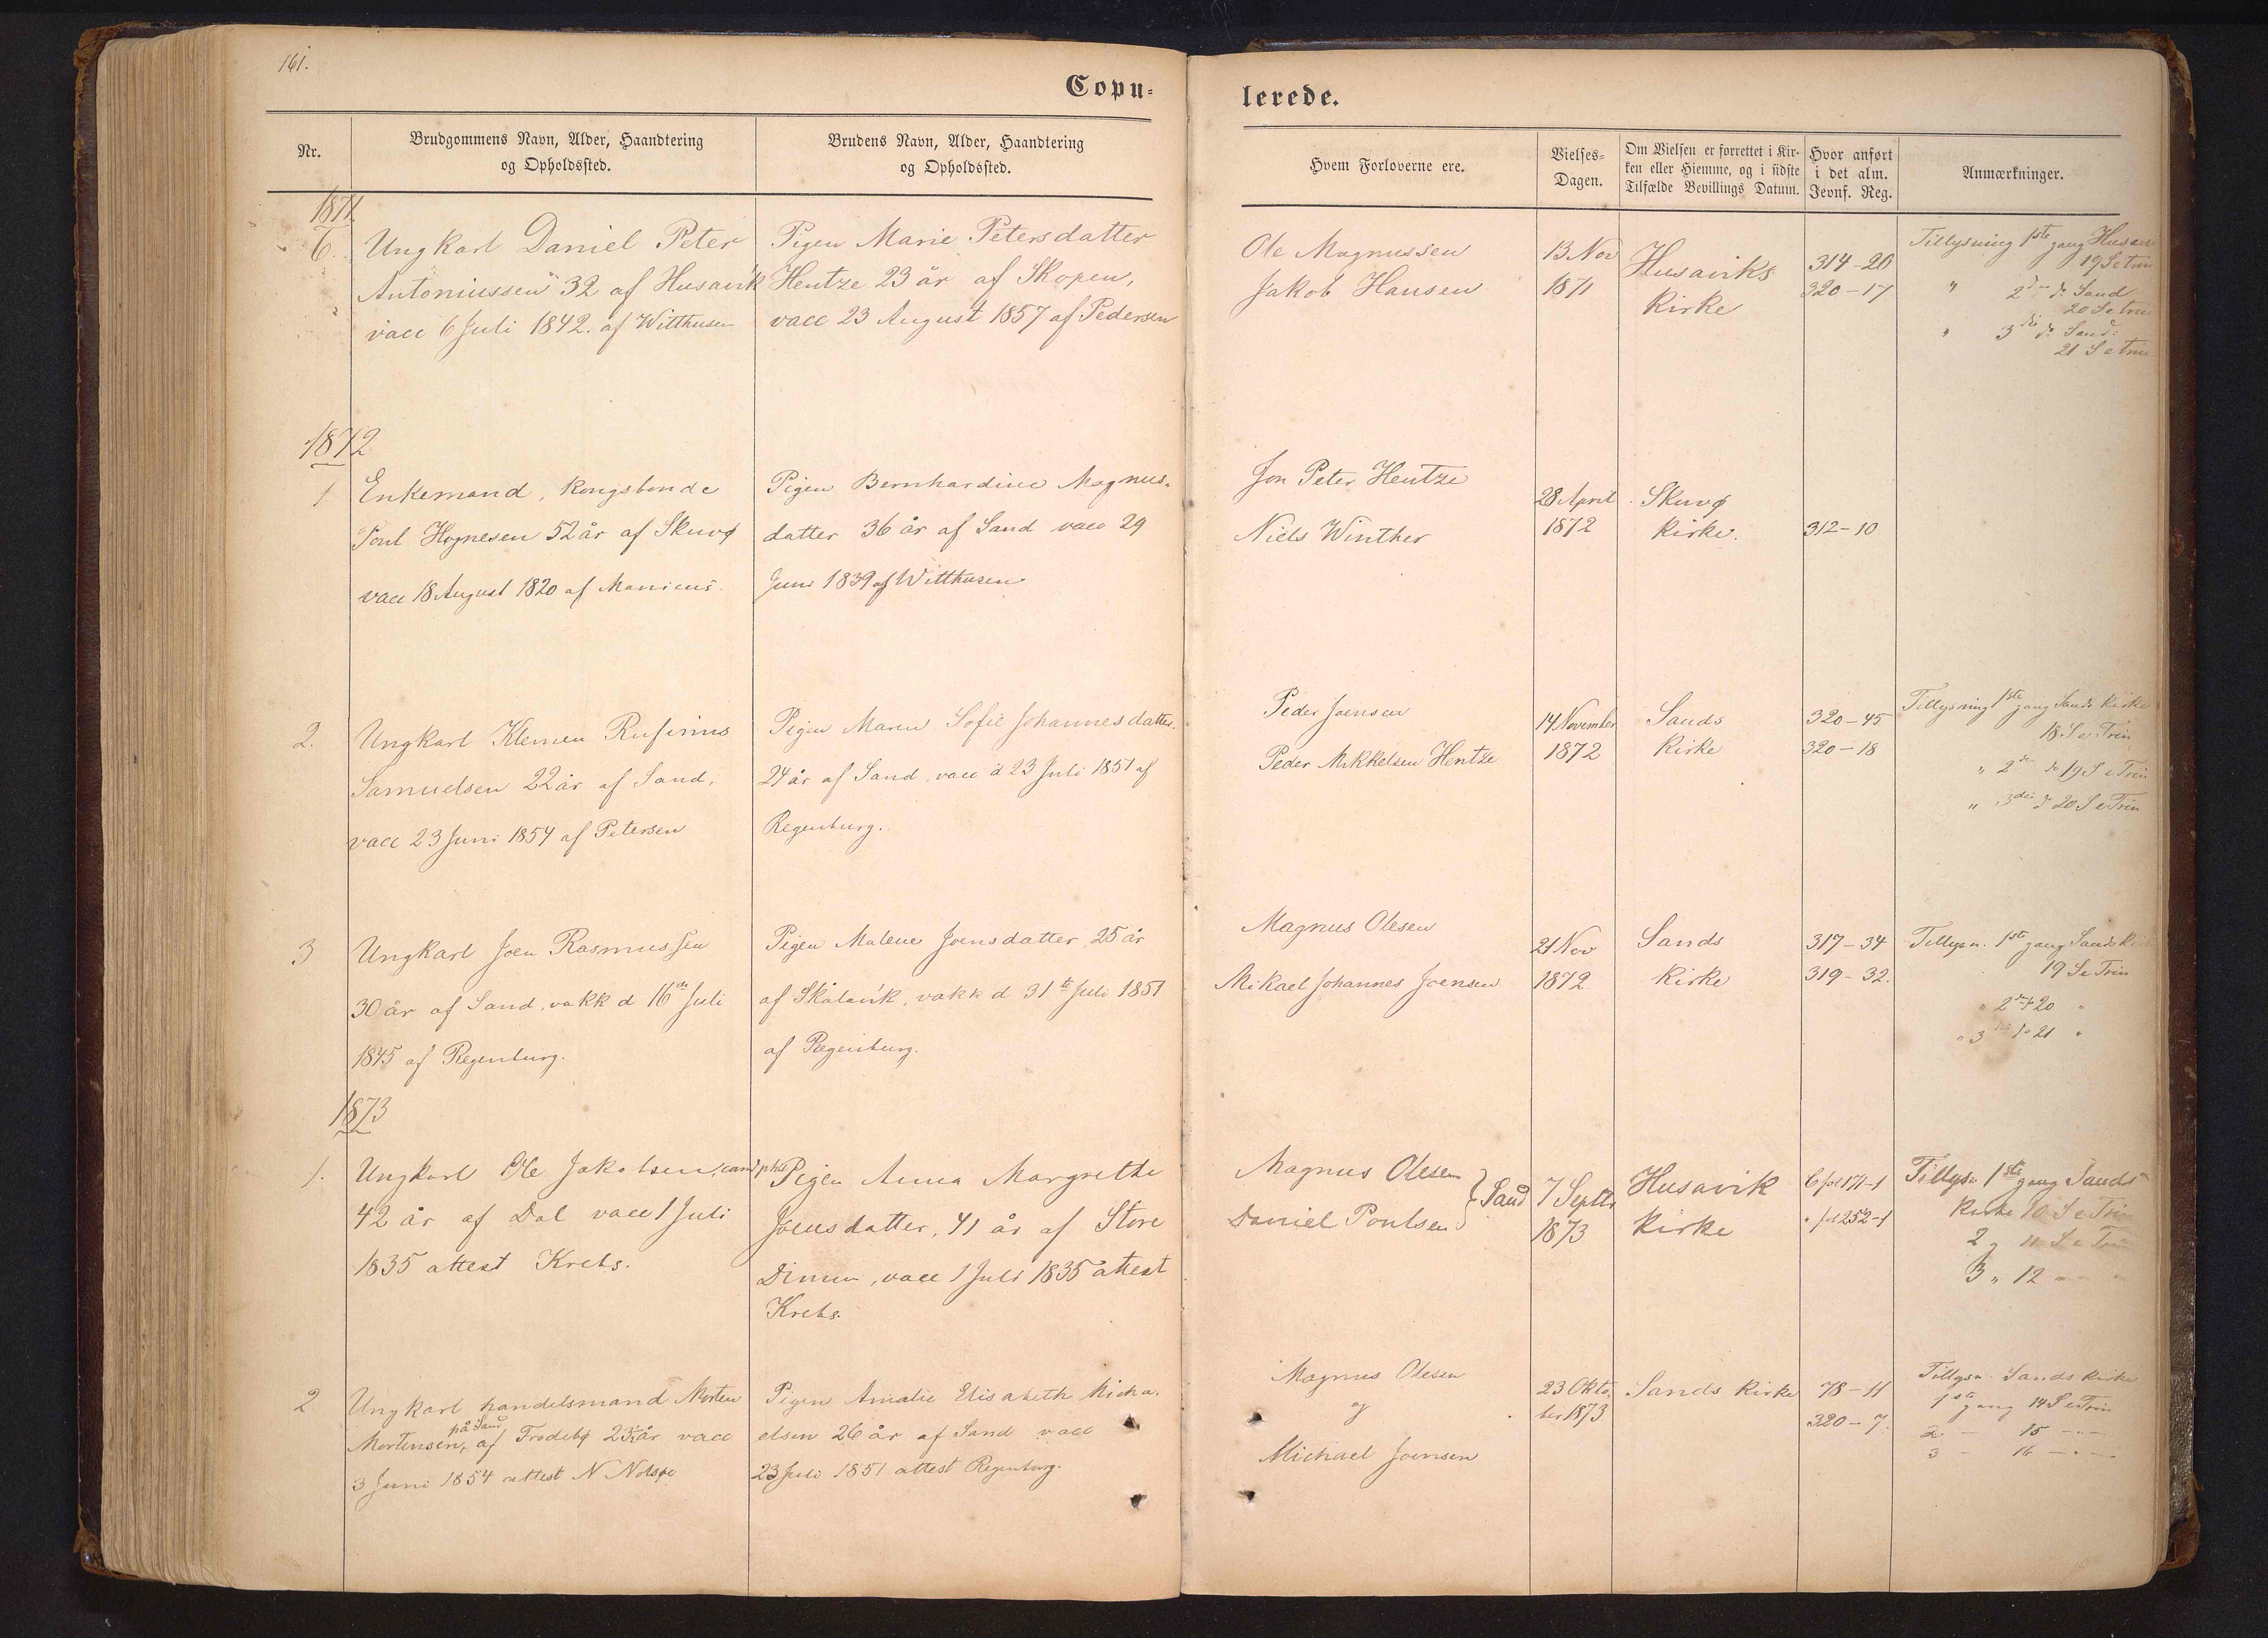 161.
Copu=
lerede.
Nr.
Brudgommens Navn, Alder, Haandtering
og Opholdssted.
Brudens Navn, Alder, Haandtering
og Opholdssted.
Hvem Forloverne ere.
Vielses=
Dagen.
Om Vielsen er forrettet i Kir-
ken eller Hiemme, og i sidste
Tilfælde Bevillings Datum.
Hvor anført
i det alm.
Jevnf. Reg.
Anmærkninger.
1871.
6.
Ungkarl Daniel Peter
Antoniussen 32 af Husavik
vacc 6 Juli 1842. af Witthusen
Pigen Marie Petersdatter
Hentze 23 år af Skopen,
vacc 23 August 1857 af Pedersen
Ole Magnussen
Jakob Hansen
13. Nov
1871
Husaviks
Kirke
314-20
320-17
Tillysning 1ste gang Husav
19 S e trin
" 2d do Sand
20 S e trin
" 3die do Sand:
21 S e trin
1872
1.
Enkemand, Kongsbonde
Poul Hognesen 52 år af Skuvø
vacc 18 August 1820 af Manicus.
Pigen Bernhardine Magnus-
datter 36 år af Sand vacc 29
Juni 1839 af Witthusen
Jon Peter Hentze
Niels Winther
28 April
1872
Skuvø
Kirke.
312-10
2.
Ungkarl Klemen Rufinius
Samuelsen 22 år af Sand,
vacc 23 Juni 1854 af Petersen
Pigen Maren Sofie Johannesdatter
24 år af Sand, vacc d 23 Juli 1851 af
Regenburg.
Peder Joensen
Peder Mikkelsen Hentze
14 November
1872
Sands
Kirke
320-45
320-18
Tillysning 1ste gang Sands Kirke
18. S e Trin
" 2den do 19 S e Trin
" 3die do 20 S e Trin
3
Ungkarl Joen Rasmussen
30 år af Sand, vakk d 16de Juli
1845 af Regenburg.
Pigen Malene Joensdatter, 25 år
af Skålavik, vakk d 31te Juli 1851
af Regenburg.
Magnus Olesen
Mikael Johannes Joensen
21 Nov
1872.
Sands
Kirke
317-34
319-32.
Tillysn. 1ste gang Sands Kir
19 S e Trin
" 2d 20 "
" 3die do 21 "
1873
1.
Ungkarl Ole Jakobsen, cand phil
42 år af Dal vacc 1 Juli
1835 attest Krebs.
Pigen Anna Margrethe
Joensdatter, 41 år af Store
Dimun, vacc 1 Juli 1835 attest
Krebs.
Magnus Olesen
Daniel Poulsen } Sand
7 Septbr
1873
Husavik
Kirke
6 fol 171-1
" fol 252-1
Tillysn 1ste gang Sands
Kirke 10 S e Trin
2 " 11 S e Trin
3 " 12 " "
2
Ungkarl handelsmand Morten
på Sand
Mortensen, af Frodebø 23½ år vacc
3 Juni 1854 attest N Nolsøe
Pigen Amalie Elisabeth Micha-
elsen 26 år af Sand vacc
23 Juli 1851 attest Regenburg.
Magnus Olesen
og
Michael Joensen
23 Okto
ber 1873
Sands Kirke
78-11
320-7.
Tillysn. Sands Kirke
1ste gang 14 S e Trin
2 - 15 - " -
3 - 16 - " -